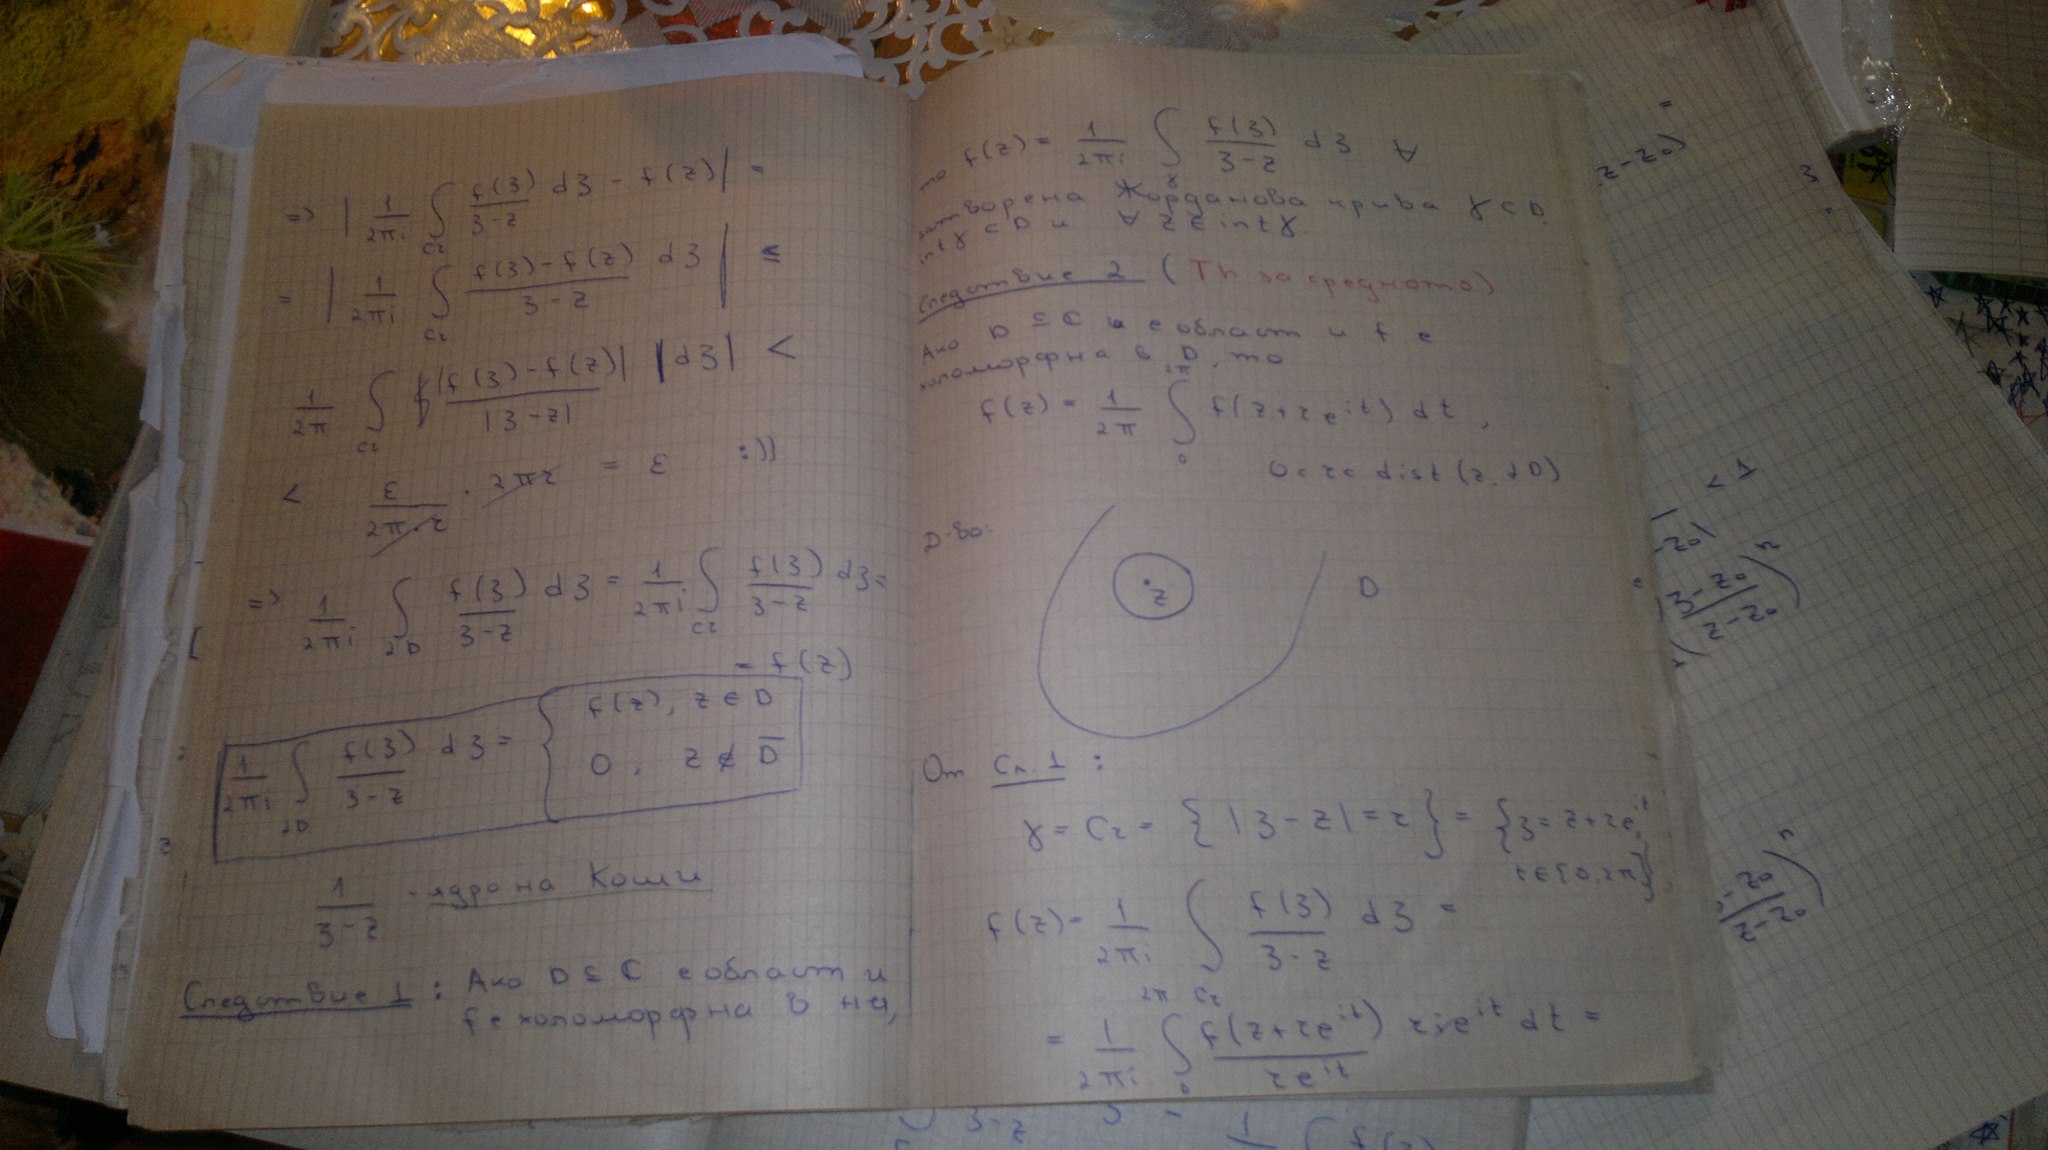 => | 1/2πi ∫_Cr f(ζ)/ζ-z dζ - f(z) | =
= | 1/2πi ∫_Cr f(ζ)-f(z)/ζ-z dζ | ≤
1/2π ∫_Cr |f(ζ)-f(z)|/|ζ-z| |dζ| <
< ε/2π.r . 2πr = ε :))
=> 1/2πi ∫_∂D f(ζ)/ζ-z dζ = 1/2πi ∫_Cr f(ζ)/ζ-z dζ =
= f(z)
1/2πi ∫_∂D f(ζ)/ζ-z dζ = { f(z), z ∈ D
0, z ∉ D̅
1/ζ-z - ядро на Коши
Следствие 1 : Ако D ⊆ ℂ е област и
f е холоморфна в нея,
то f(z) = 1/2πi ∫_γ f(ζ)/ζ-z dζ ∀
затворена Жорданова крива γ ⊂ D
int γ ⊂ D и ∀ z ∈ int γ.
Следствие 2 (Th за средното)
Ако D ⊆ ℂ е област и f е
холоморфна в D, то
f(z) = 1/2π ∫_0^2π f(z+re^it) dt,
0 < r < dist (z, ∂D)
D-во:
z
D
От Сл. 1 :
γ = Cr = { |ζ-z| = r } = { ζ = z+re^it,
t ∈ [0, 2π] }
f(z) = 1/2πi ∫_Cr f(ζ)/ζ-z dζ =
= 1/2πi ∫_0^2π f(z+re^it)/re^it rie^it dt =
z-z₀)
< 1
-z₀)
(ζ-z₀/z-z₀)^n
ζ-z₀/z-z₀)^n
ζ-z